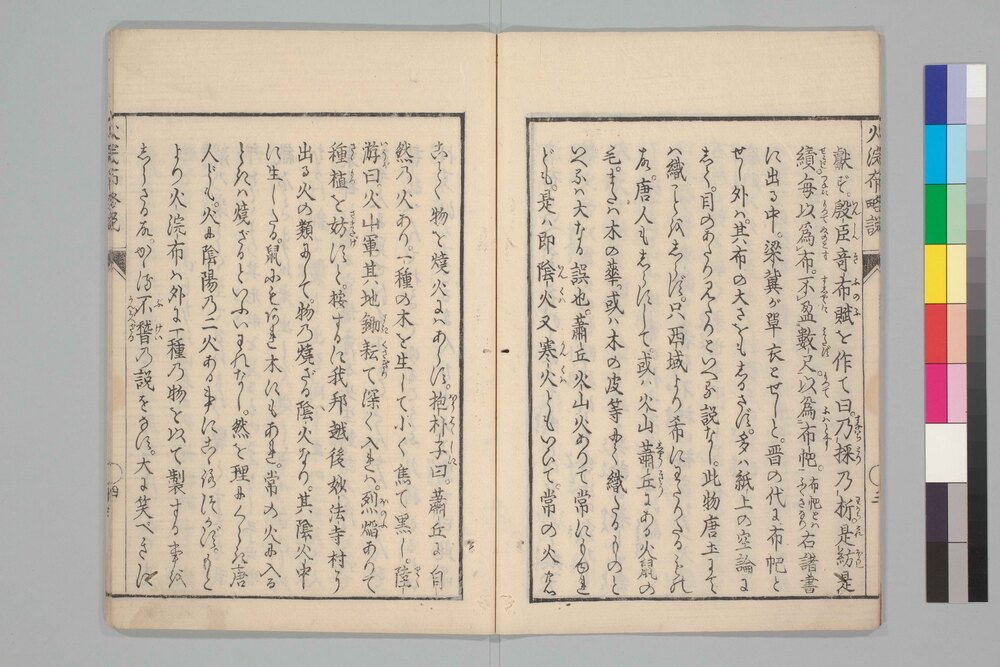 火浣布略説
獻ず。殷臣竒布賦を作て曰。乃採乃析。是紡是
績。毎以為布。不盈數尺。以為布帊。布帊ハふくさなり右諸書
に出る中。梁冀が單衣とせしと。晋の代に布帊と
せし外ハ。其布の大さをもしるさず。多ハ紙上の空論に
して。目のあたり見たりといへる説なし。此物唐土にて
ハ織ことをしらず。只西域より希にわたりたるもの
故。唐人もしらずして或ハ火山蕭丘にある火鼠の
毛。または木の華。或ハ木の皮等にて織たるものと
いへるハ大なる誤也。蕭丘火山火ありて常にもゆれ
ども。是ハ即陰火又寒火ともいいて。常の火の
ごとく物を燒火にハあらず。抱朴子曰。蕭丘に自
然乃火あり。一種の木を生して小く焦て黒し。陸
游曰。火山軍其地鋤耘て深く入れハ。烈焔ありて
種植を妨ずと。按するに我邦越後妙法寺村より
出る火の類にして。物乃燒ざる陰火なり。其陰火中
に生したる。鼠にもあれ木にもあれ。常の火に入る
ときハ燒ざるといふいわれなし。然を理にくらき唐
人ども。火に陰陽乃二火ある事にこゝろづかず。もと
より火浣布ハ外に一種乃物を以て製する事を
しらざる故。かゝる不稽乃説をなす。大に笑べきは
火浣布略説